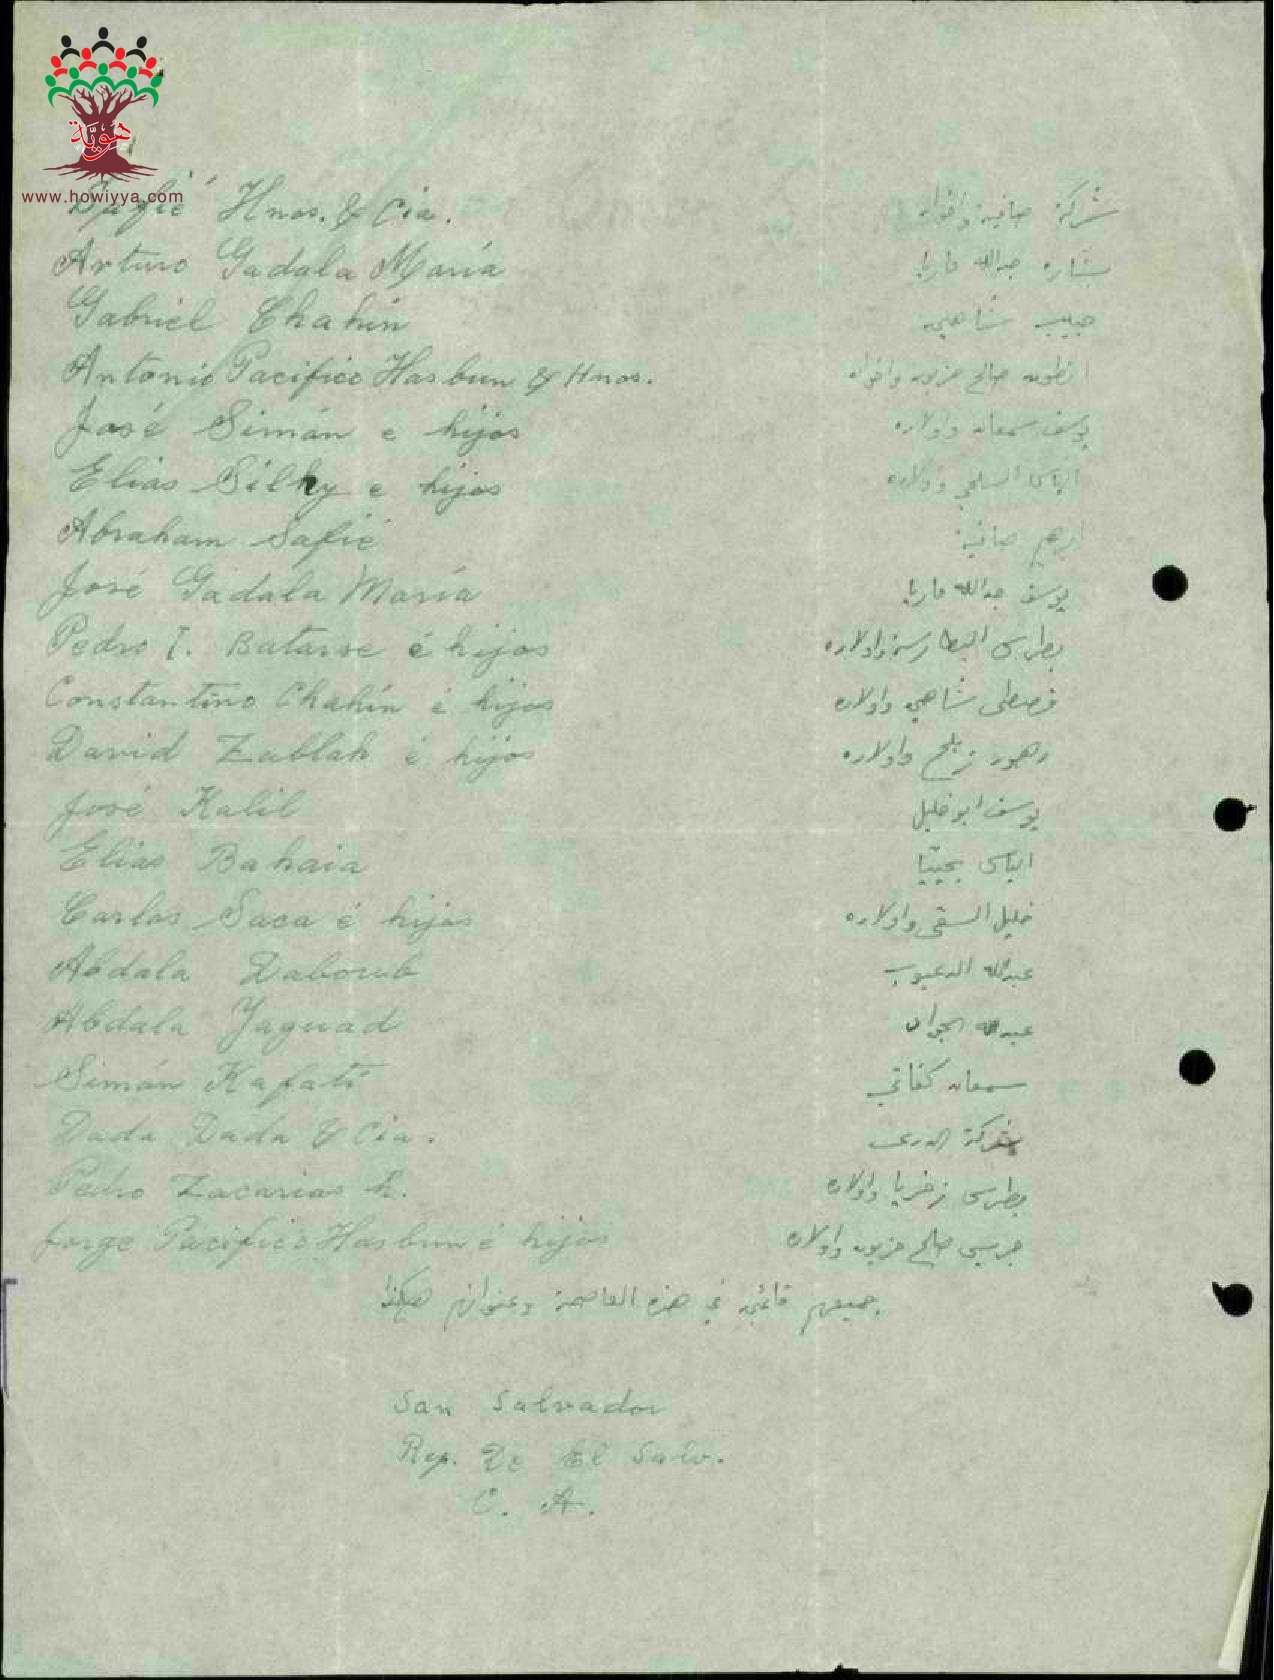 هوية
www.howiyya.com
Safié Hnos. & Cia. شركة صافية واخوانه
Arturo Gadala María بشاره جدالله ماريا
Gabriel Chahín جبيب شاهين
Antonio Pacifico Hasbun & Hnos. انطون صالح حزبون واخوانه
José Simán e hijos يوسف سمعان واولاده
Elias Silhy e hijos الياس السلحي واولاده
Abraham Safié ابرهيم صافية
José Gadala María يوسف جدالله ماريا
Pedro I. Batarse é hijos بطرس البطارسة واولاده
Constantino Chahín é hijos قسطنطي شاهين واولاده
David Zablah é hijos داهود زبلح واولاده
José Kalil يوسف ابو خليل
Elias Bahaia الياس
Carlos Saca é hijos خليل السقى واولاده
Abdala Daboub عبدالله الدعبوب
Abdala Jaguad عبدالله الجواد
Simán Kafati سمعان كفاتي
Dada Dada & Cia. شركة الددى
Pedro Zacarias h. بطرس زخريا واولاده
Jorge Pacifico Hasbun é hijos جريس صالح حزبون واولاده
جميعهم قاطنين في هذه العاصمة وعنوانهم هكذا
San Salvador
Rep. De El Salv.
C. A.